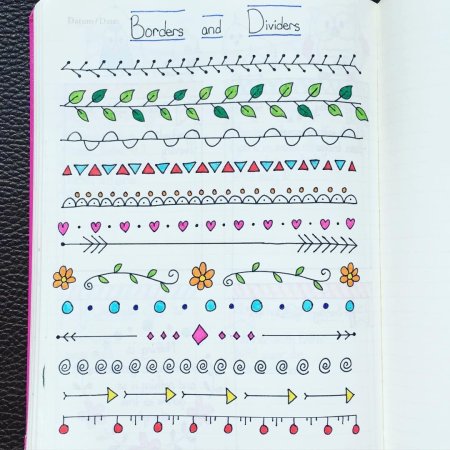 Datum / Date:
Borders and Dividers